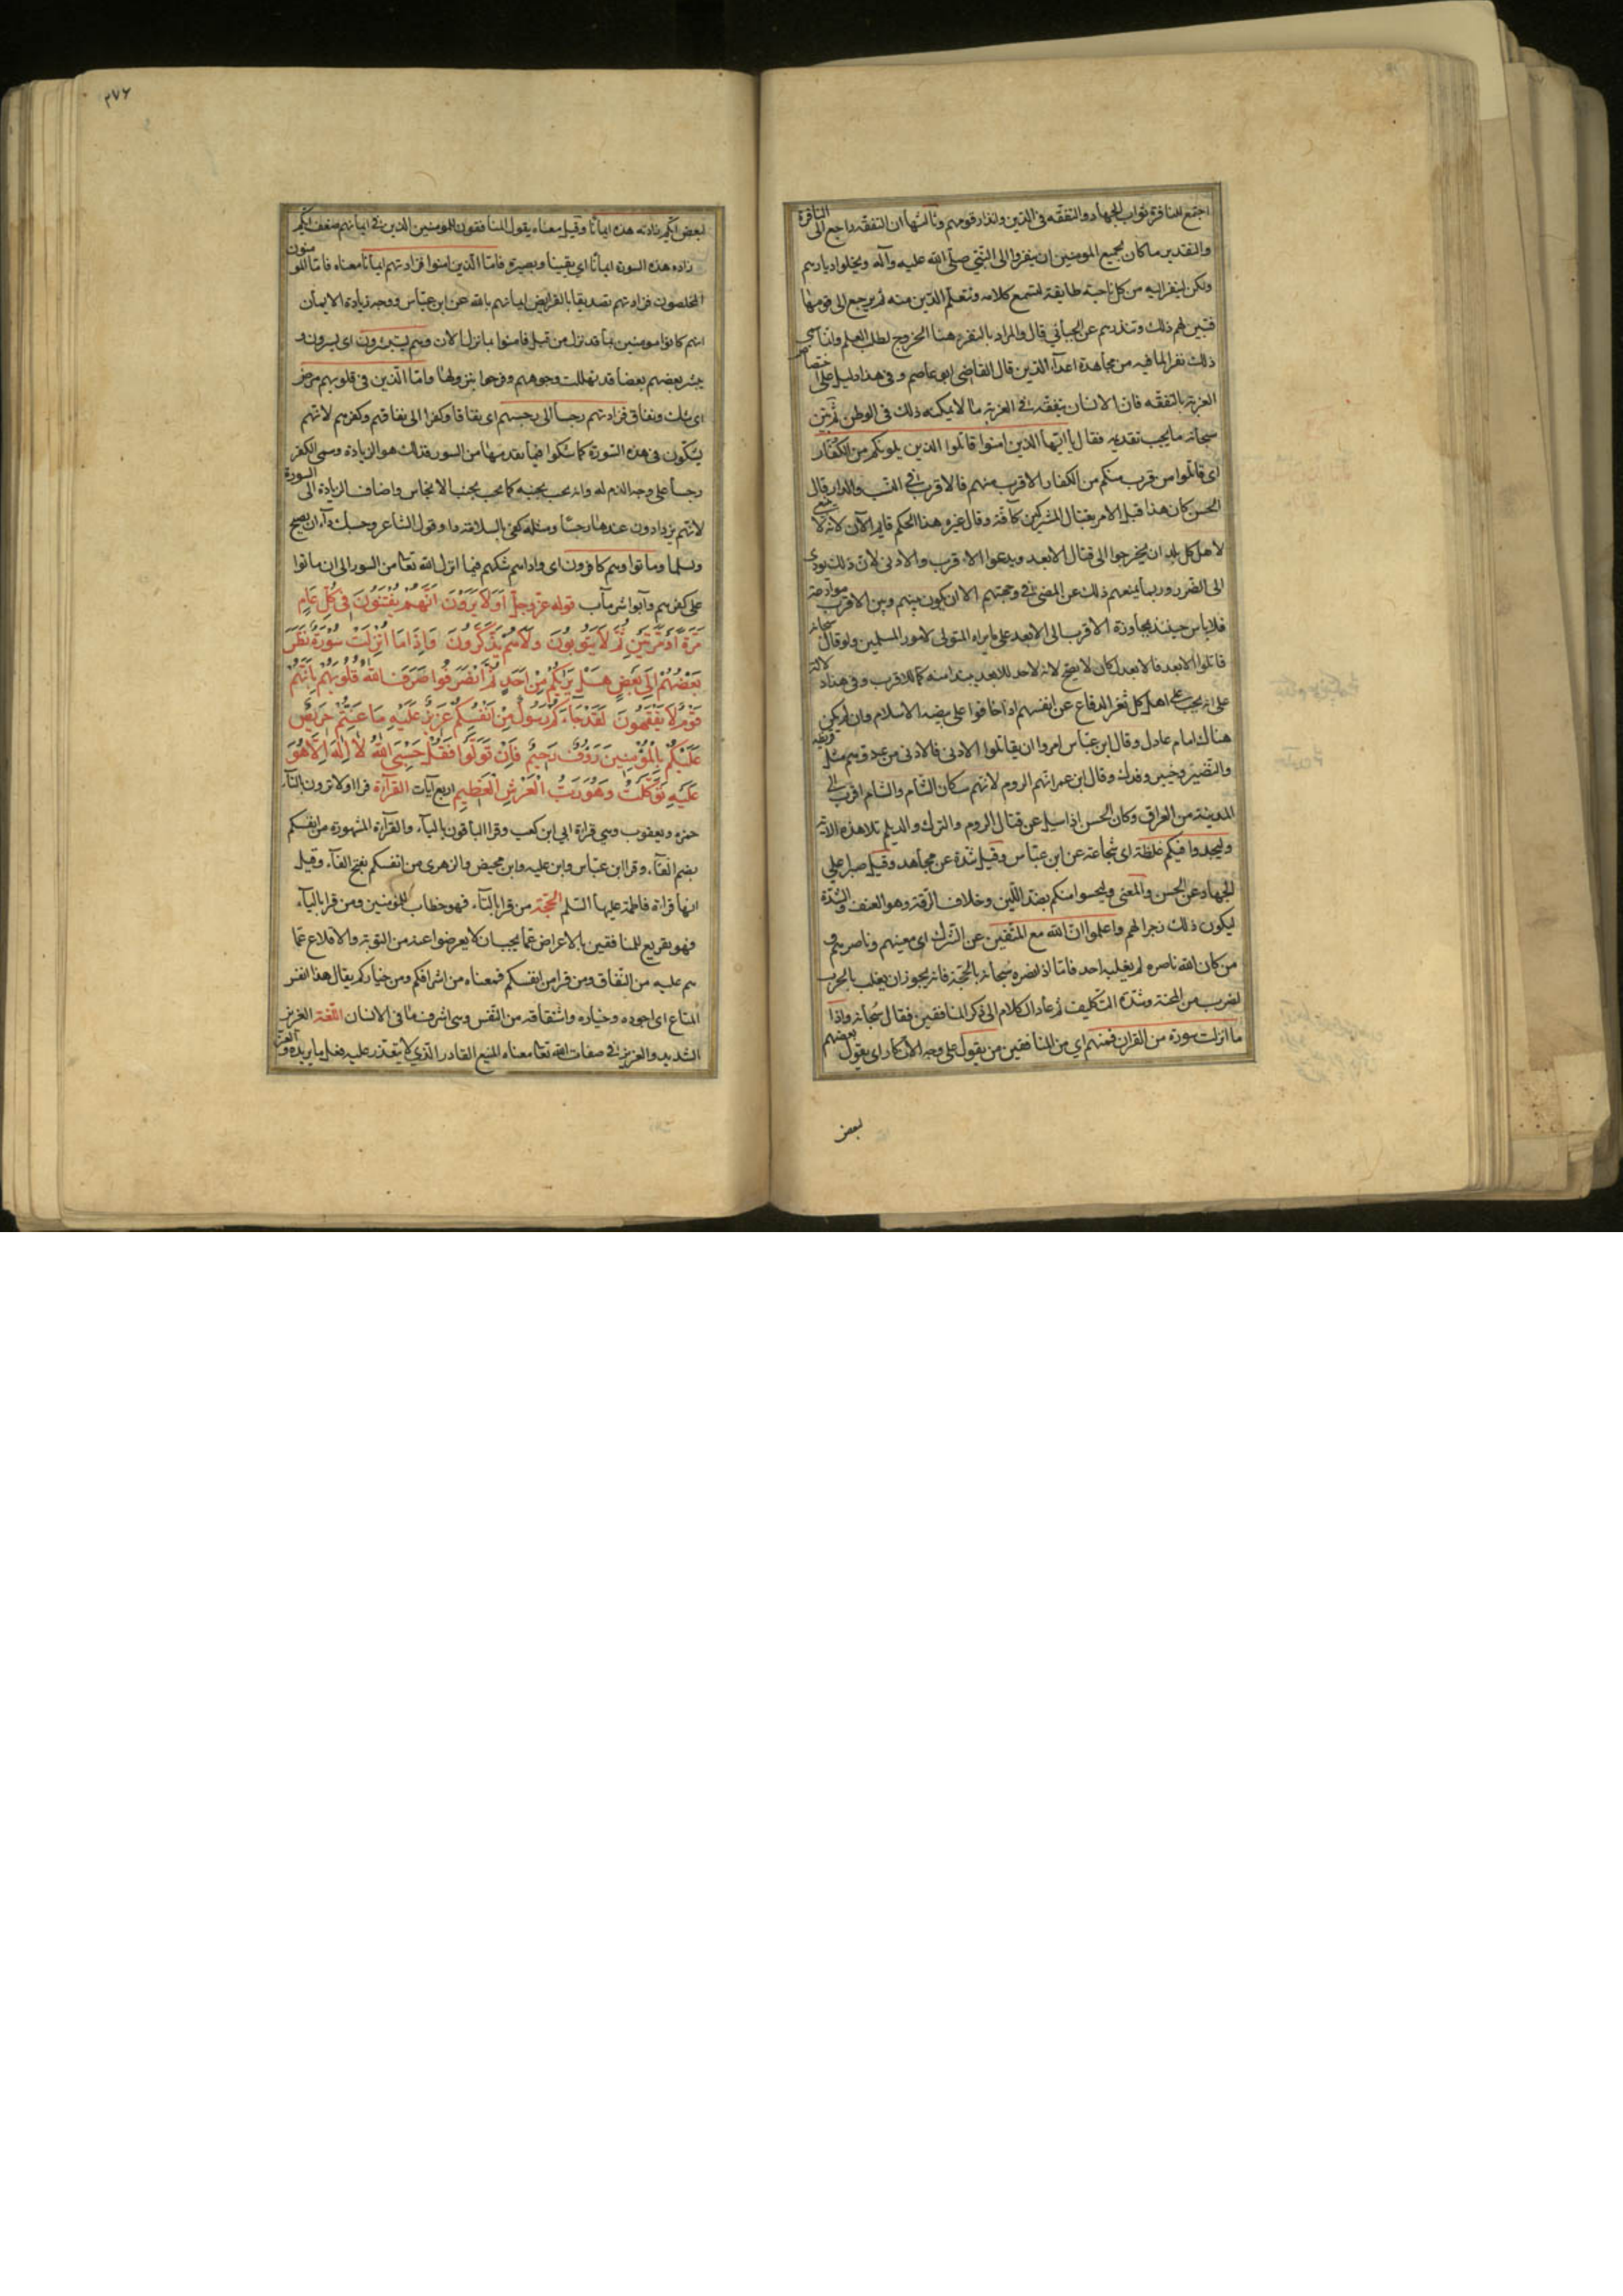 اجتمع للنافرة ثواب الجهاد والتفقه في الدين وانذار قومهم وثالثها ان التفقه راجع الى النافرة
والتقدير ما كان لجميع المومنين ان ينفروا الى النبي صلى الله عليه وآله ويخلوا ديارهم
ولكن لينفر اليه من كل ناحية طايفة لتسمع كلامه وتتعلم الدين منه ثم يرجع الى قومها
فتبين لهم ذلك وتنذرهم عن الجبأئي قال والمراد بالنفر هنا الخروج لطلب العلم وانما سمى
ذلك نفرا لما فيه من مجاهدة اعدآء الدين قال القاضى ابو عاصم وفي هذا دليل على اختصاص
الغربة بالتفقه فان الانسان يتفقه في الغربة ما لا يمكنه ذلك في الوطن ثم بين
سبحانه ما يجب تقديمه فقال يا ايها الذين امنوا قاتلوا الذين يلونكم من الكفار
اى قاتلوا من قرب منكم من الكفار الاقرب منهم فالاقرب في النسب والدار قال
الحسن كان هذا قبل الامر بقتال المشركين كآفة وقال غيره هذا الحكم قايم الآن لانه لا ينبغي
لاهل كل بلد ان يخرجوا الى قتال الابعد ويدعوا الاقرب والادنى لان ذلك يودى
الى الضرر وربما يمنعهم ذلك عن المضى في وجهتهم الا ان يكون بينهم وبين الاقرب موادعة
فلا باس حينئذ بمجاوزة الاقرب الى الابعد على ما يراه المتولى لامور المسلمين ولو قال سبحانه
قاتلوا الابعد فالابعد لكان لا يصح لانه لا حد للابعد يبتدأ منه كما للاقرب وفي هذا دلالة
على انه يجب على اهل كل ثغر الدفاع عن انفسهم اذا خافوا على بيضة الاسلام وان لم يكن
هناك امام عادل وقال ابن عباس امروا ان يقاتلوا الادنى فالادنى من عدوهم مثل قريظة
والنضير وخيبر وفدك وقال ابن عمر انهم الروم لانهم سكان الشام والشام اقرب الى
المدينة من العراق وكان الحسن اذا سيل عن قتال الروم والترك والديلم تلا هذه الآية
وليجدوا فيكم غلظة اى شجاعة عن ابن عباس وقيل شدة عن مجاهد وقيل صبرا على
الجهاد عن الحسن والمعنى وليحسوا منكم بضد اللين وخلاف الرقة وهو العنف والشدة
ليكون ذلك زجرا لهم واعلموا ان الله مع المتقين عن الشرك اى معينهم وناصرهم و
من كان الله ناصره لم يغلبه احد فاما اذا نصره سبحانه بالحجة فانه يجوز ان يغلب بالحرب
لضرب من المحنة وشدة التكليف ثم عاد الكلام الى ذكر المنافقين فقال سبحانه واذا
ما انزلت سورة من القران فمنهم اي من المنافقين من يقول على وجه الانكار اى يقول بعضهم
لبعض
٣٧٦
لبعض ايكم زادته هذه ايمانا وقيل معناه يقول المنافقون للمومنين الذين في ايمانهم ضعف ايكم
زادته هذه السورة ايمانا اي يقينا وبصيرة فاما الذين امنوا فزادتهم ايمانا معناه فاما المومنون
المخلصون فزادتهم تصديقا بالفرايض ايمانهم بالله عن ابن عباس ووجه زيادة الايمان
انهم كانوا مومنين بما قد نزل من قبل فامنوا بما نزل الان وهم يستبشرون اى يسرون و
يبشر بعضهم بعضا قد تهللت وجوههم وفرحوا بنزولها واما الذين في قلوبهم مرض
اى شك ونفاق فزادتهم رجسا الى رجسهم اى نفاقا وكفرا الى نفاقهم وكفرهم لانهم
يشكون في هذه السورة كما شكوا فيما تقدمها من السور فذلك هو الزيادة وسمى الكفر
رجسا على وجه الذم له وانه يجب تجنبه كما يجب تجنب الانجاس واضاف الزيادة الى السورة
لانهم يزدادون عندها رجسا ومثله كفى بالسلامة داء وقول الشاعر وحسبك داء ان تصح
وتسلما وماتوا وهم كافرون اى واداهم شكهم فيما انزل الله تعا من السور الى ان ماتوا
على كفرهم وآبوا شر مآب قوله عز وجل اَوَلَا يَرَوْنَ اَنَّهُمْ يُفْتَنُونَ فِى كُلِّ عَامٍ
مَرَّةً اَوْ مَرَّتَيْنِ ثُمَّ لَا يَتُوبُونَ وَلَا هُمْ يَذَّكَّرُونَ وَاِذَا مَا اُنْزِلَتْ سُورَةٌ نَظَرَ
بَعْضُهُمْ اِلَى بَعْضٍ هَلْ يَرَيكُمْ مِنْ اَحَدٍ ثُمَّ انْصَرَفُوا صَرَفَ اللهُ قُلُوبَهُمْ بِاَنَّهُمْ
قَوْمٌ لَا يَفْقَهُونَ لَقَدْ جَآءَكُمْ رَسُولٌ مِنْ اَنْفُسِكُمْ عَزِيزٌ عَلَيْهِ مَا عَنِتُّمْ حَرِيصٌ
عَلَيْكُمْ بِالْمُؤْمِنِينَ رَؤُفٌ رَحِيمٌ فَاِنْ تَوَلَّوْا فَقُلْ حَسْبِىَ اللهُ لَا اِلَهَ اِلَّا هُوَ
عَلَيْهِ تَوَكَّلْتُ وَهُوَ رَبُّ الْعَرْشِ الْعَظِيمِ اربع آيات القرآءة قرا اولا ترون بالتآء
حمزه ويعقوب وهي قراءة ابي ابن كعب وقرا الباقون باليآء والقرآءة المشهورة من انفسكم
بضم الفآء وقرا ابن عباس وابن عليه وابن محيض والزهرى من انفسكم بفتح الفآء وقيل
انها قراءة فاطمة عليها السلم الحجة من قرا بالتآء فهو خطاب للمؤمنين ومن قرا باليآء
فهو تقريع للمنافقين بالاعراض عما يجب ان لا يعرضوا عنه من التوبة والاقلاع عما
هم عليه من النفاق ومن قرا من انفسكم فمعناه من اشرافكم ومن خياركم يقال هذا انفس
المتاع اى اجوده وخياره واشتقاقه من النفس وهى اشرف ما فى الانسان اللغة العزيز
الشديد والعزيز في صفات الله تعا معناه المنيع القادر الذي لا يتعذر عليه فعل ما يريده والعنت